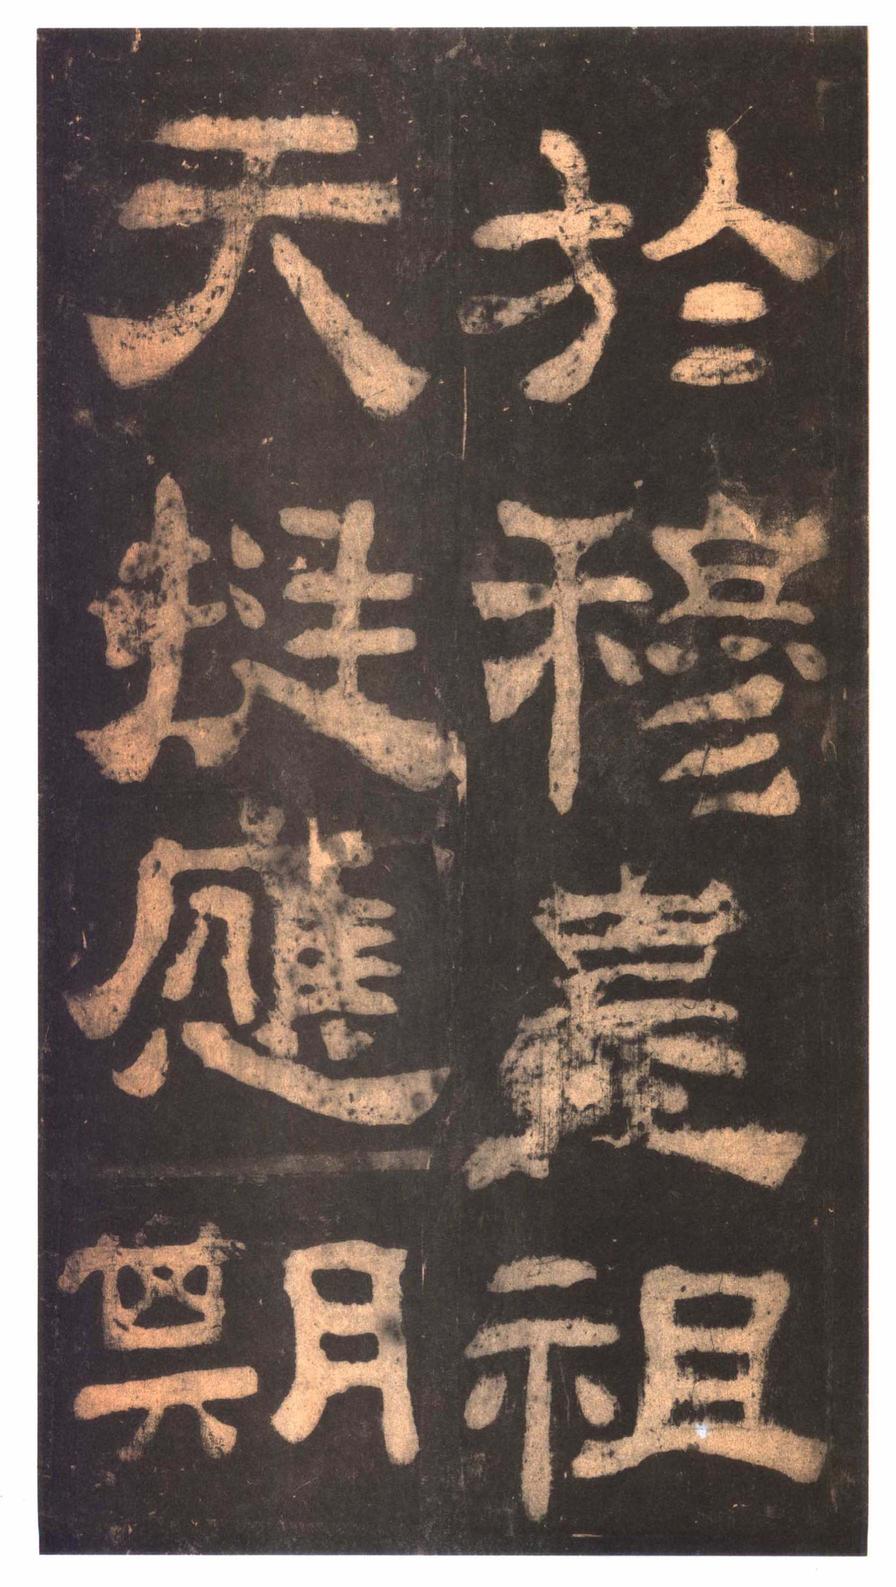 於穆皇祖
天挺應期